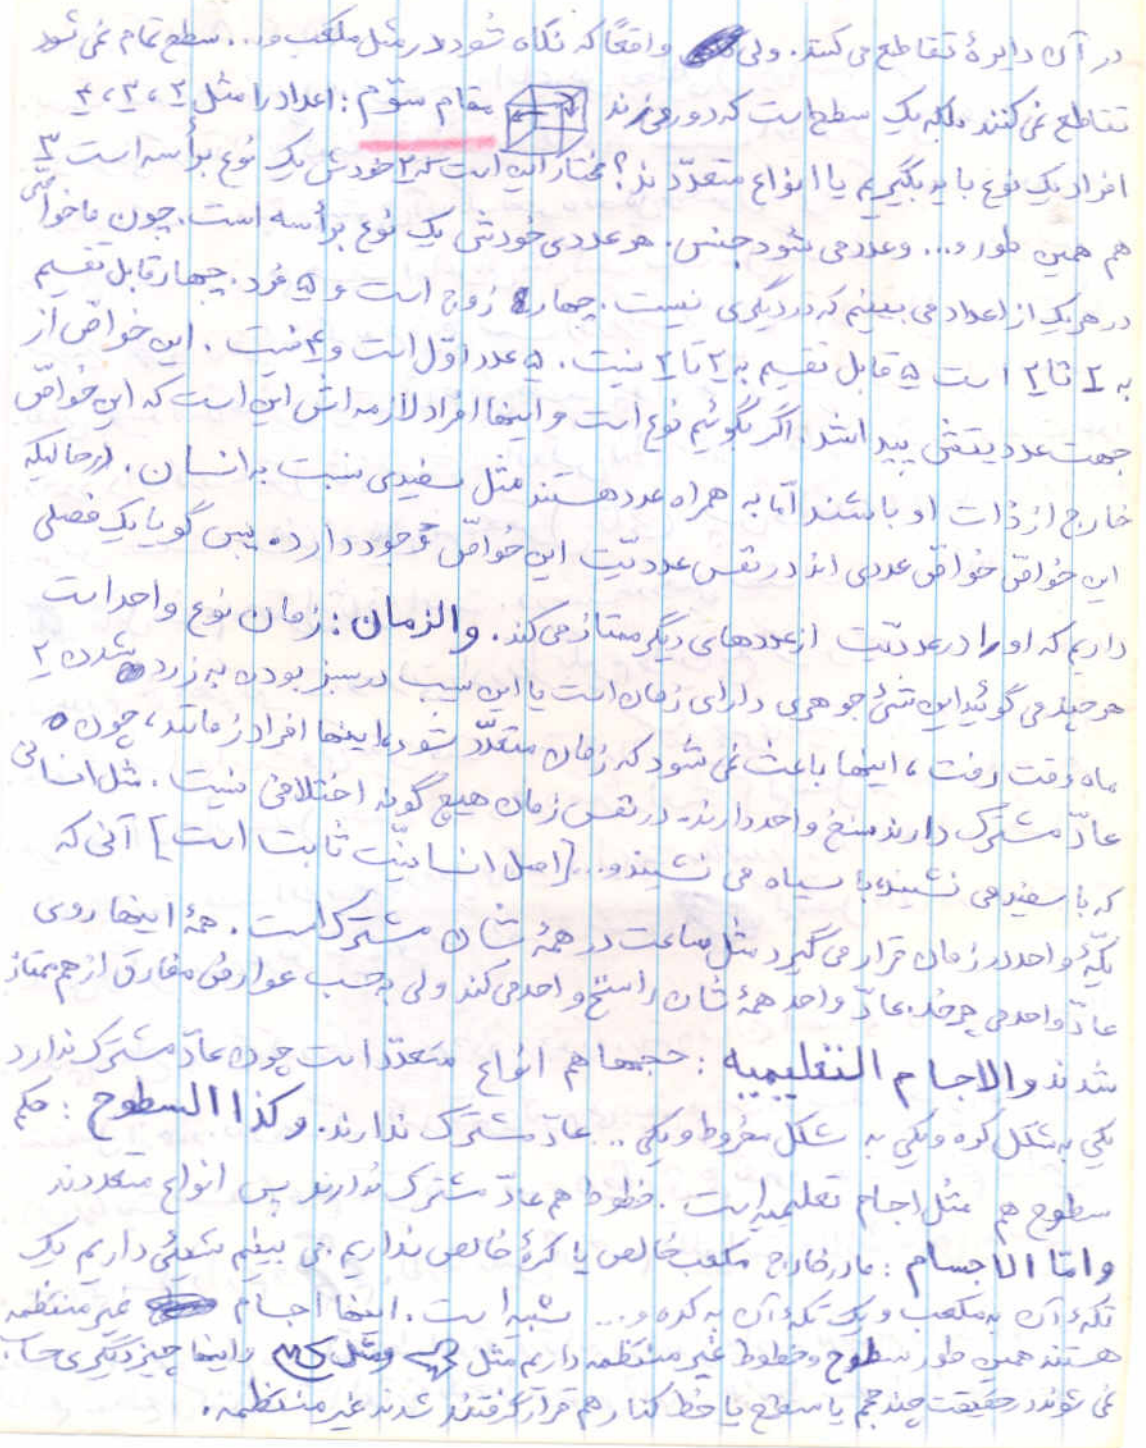 در آن دایرهٔ تقاطع می‌کنند. ولی واقعًا که نگاه شود در مثل مکعب و... سطح تمام نمی‌شود
تقاطع نمی‌کنند بلکه یک سطح است که دور می‌زند مقام سوّم: اعداد را مثل ۲، ۳، ۴
افراد یک نوع باید بگیریم یا انواع متعدّدند؟ مختار این است که ۲ خودش یک نوع برأسه است ۳
هم همین طور و... و عدد می‌شود جنس. هر عددی خودش یک نوع برأسه است. چون ما خواصّی
در هر یک از اعداد می‌بینیم که در دیگری نیست. چهار زوج است و ۵ فرد. چهار قابل تقسیم
به ۲ تا ۲ است ۵ قابل تقسیم به ۲ تا ۲ نیست. ۵ عدد اوّل است و ۴ نیست. این خواصّ از
جهت عددیتش پیدا شد. اگر بگوئیم نوع است و اینها افراد لازمه‌اش این است که این خواصّ
خارج از ذات او باشند امّا به همراه عدد هستند مثل سفیدی نسبت به انسان. درحالیکه
این خواصّ خواصّ عددی اند در نفس عددیّت این خواصّ وجود دارد. پس گویا یک فصلی
داریم که او را در عددیّت از عددهای دیگر ممتاز می‌کند. والزمان: زمان نوع واحد است
هر چند می‌گوئید این شئ جوهری دارای زمان است یا این سیب در سبز بودن به زرد شدن ۲
ماه وقت رفت، اینها باعث نمی‌شود که زمان متعدّد شود، اینها افراد زمانند، چون
عادّ مشترک دارند سنخ واحد دارند. در نفس زمان هیچ گونه اختلافی نیست. مثل انسانی
که با سفید می‌نشیند، با سیاه می‌نشیند و... [اصل انسانیّت ثابت است] آنی که
یکّهٔ واحد در زمان قرار می‌گیرد مثل ساعت در همهٔ شان مشترک است. همهٔ اینها روی
عادّ واحد می‌چرخد. عادّ واحد همهٔ شان را سنخ واحد می‌کند ولی به حسب عوارض مفارق از هم ممتاز
شدند والاجسام التعلیمیه: حجمها هم انواع متعدّد است چون عادّ مشترک ندارد
یکی به شکل کره و یکی به شکل مخروط و یکی.. عادّ مشترک ندارند. وکذا السطوح: حکم
سطوح هم مثل اجسام تعلیمیه است. خطوط هم عادّ مشترک ندارند پس انواع متعددند
وامّا الاجسام: ما در خارج مکعب خالص یا کرهٔ خالص نداریم. می‌بینیم شیئی داریم یک
تکهٔ آن به مکعب و یک تکهٔ آن به کره و... شبیه است. اینها اجسام غیر منتظمه
هستند همین طور سطوح و خطوط غیر منتظمه داریم مثل و مثل و اینها چیز دیگری حساب
نمی‌شوند در حقیقت چند حجم یا سطح یا خط کنار هم قرار گرفتند شدند غیر منتظمه.